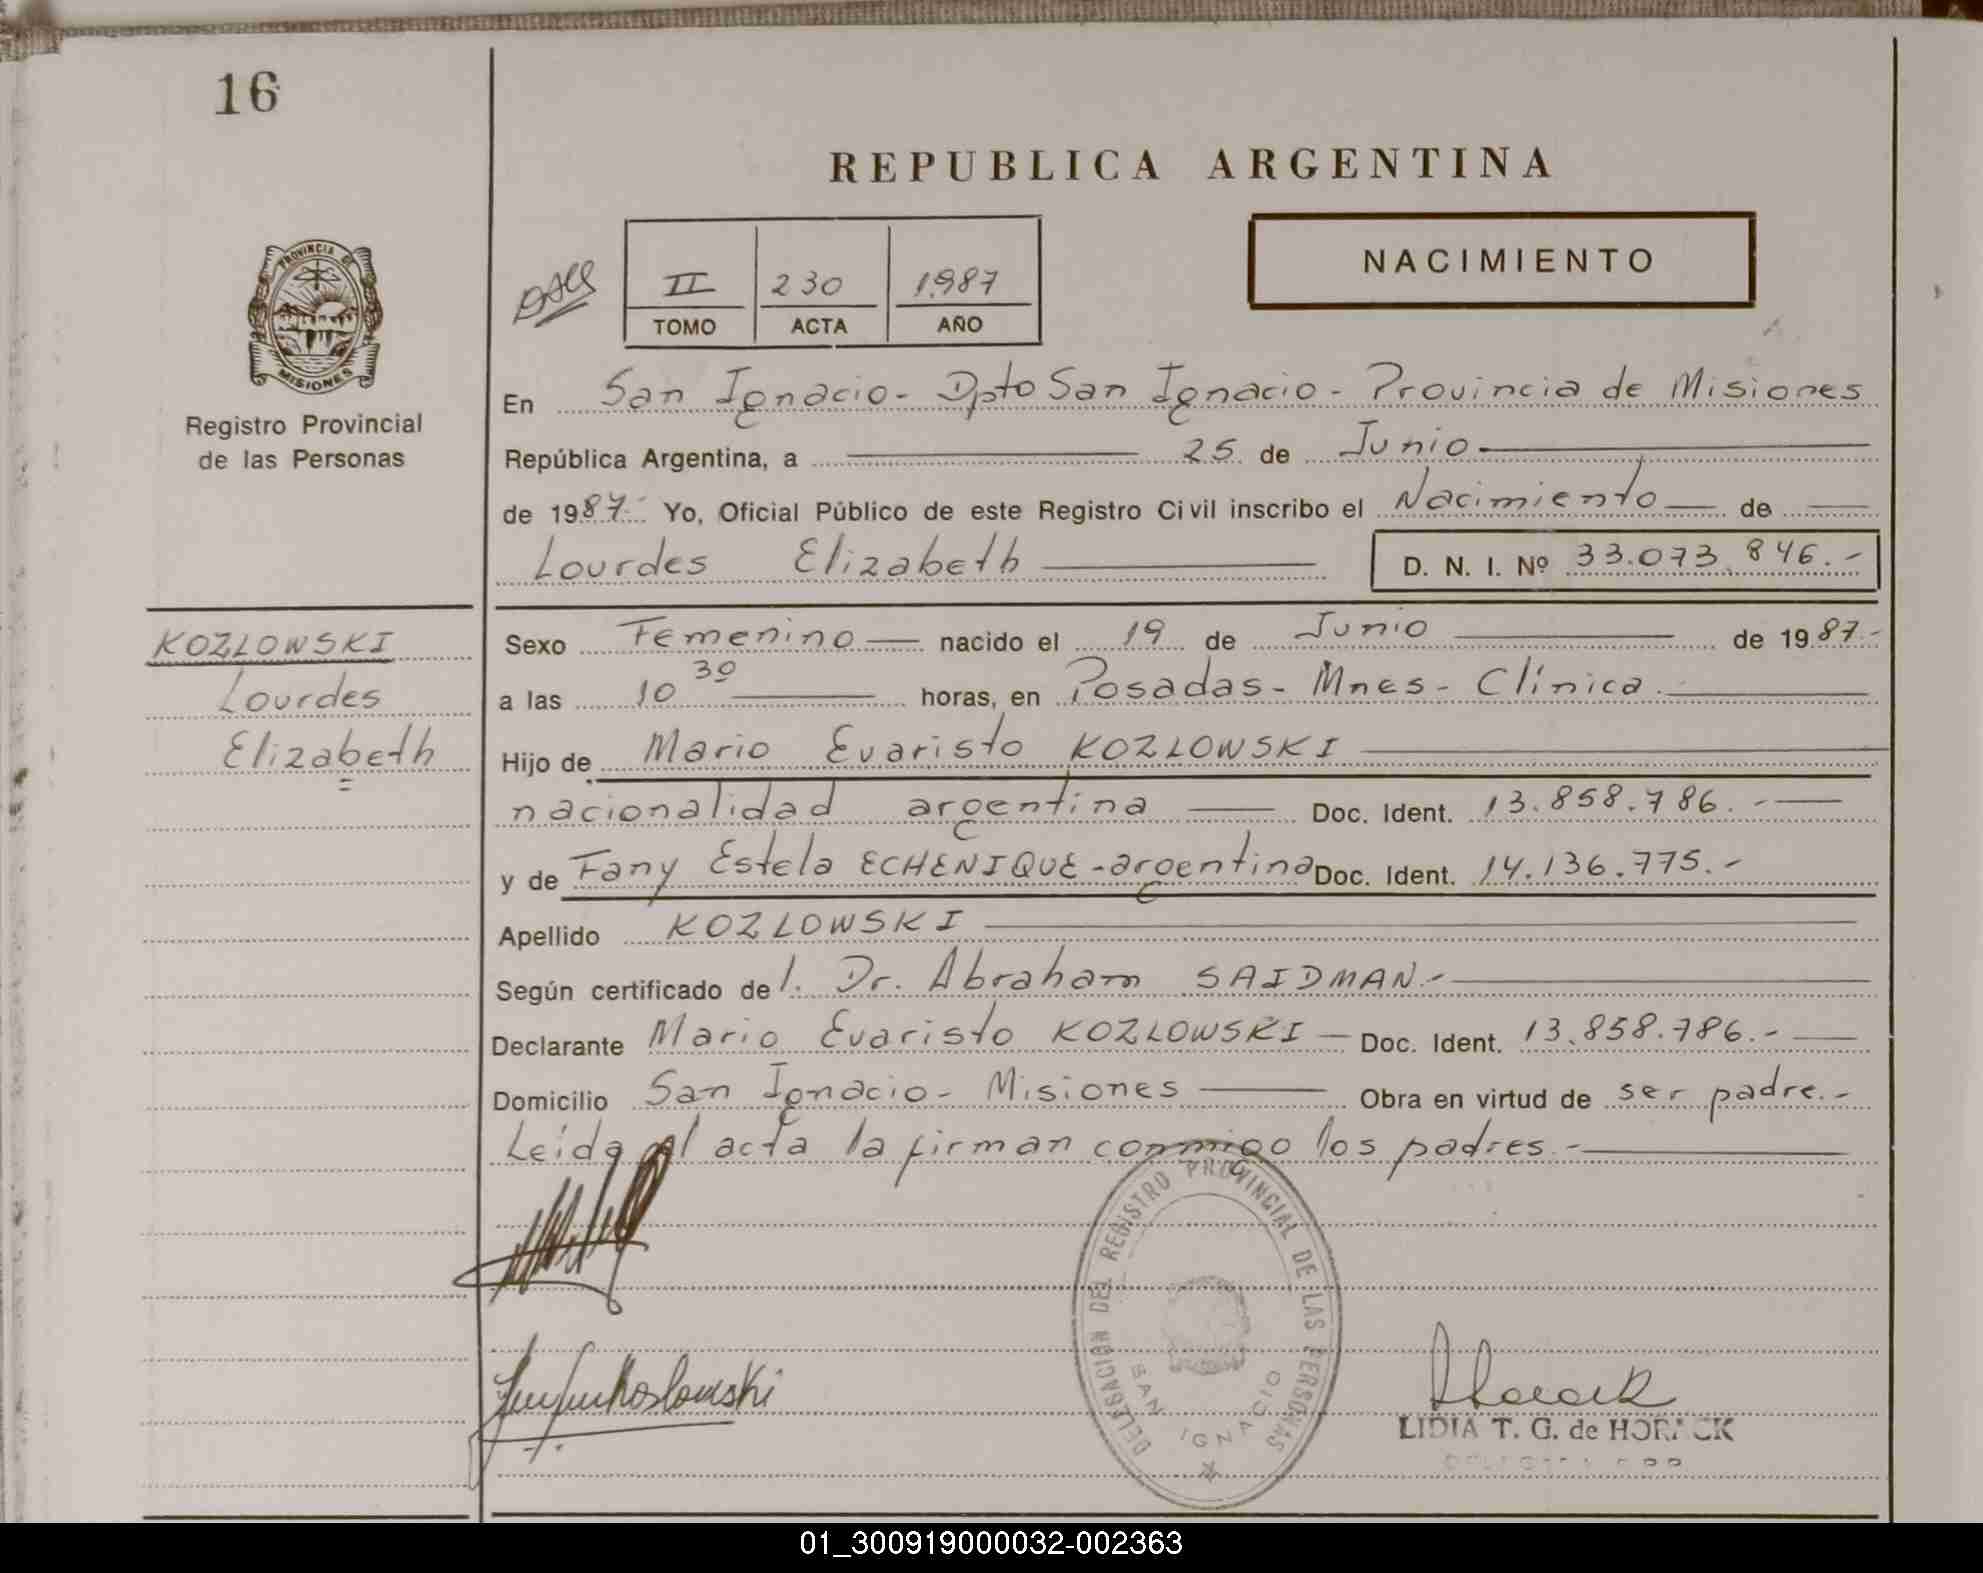 16
REPUBLICA ARGENTINA
PROVINCIA DE
MISIONES
Registro Provincial
de las Personas
II 230 1987
TOMO ACTA AÑO
NACIMIENTO
En San Ignacio - Dpto San Ignacio - Provincia de Misiones
República Argentina, a 25 de Junio
de 1987.- Yo, Oficial Público de este Registro Civil inscribo el Nacimiento de
Lourdes Elizabeth D. N. I. Nº 33.073.846.-
KOZLOWSKI
Lourdes
Elizabeth
Sexo Femenino nacido el 19 de Junio de 1987.-
a las 10 30 horas, en Posadas - Mnes - Clínica.
Hijo de Mario Evaristo KOZLOWSKI
nacionalidad argentina Doc. Ident. 13.858.786.-
y de Fany Estela ECHENIQUE - argentina Doc. Ident. 14.136.775.-
Apellido KOZLOWSKI
Según certificado del. Dr. Abraham SAIDMAN.-
Declarante Mario Evaristo KOZLOWSKI - Doc. Ident. 13.858.786.-
Domicilio San Ignacio - Misiones Obra en virtud de ser padre.-
Leída el acta la firman conmigo los padres.-
DELEGACION DEL REGISTRO PROVINCIAL DE LAS PERSONAS
SAN IGNACIO
LIDIA T. G. de HORACK
01_300919000032-002363